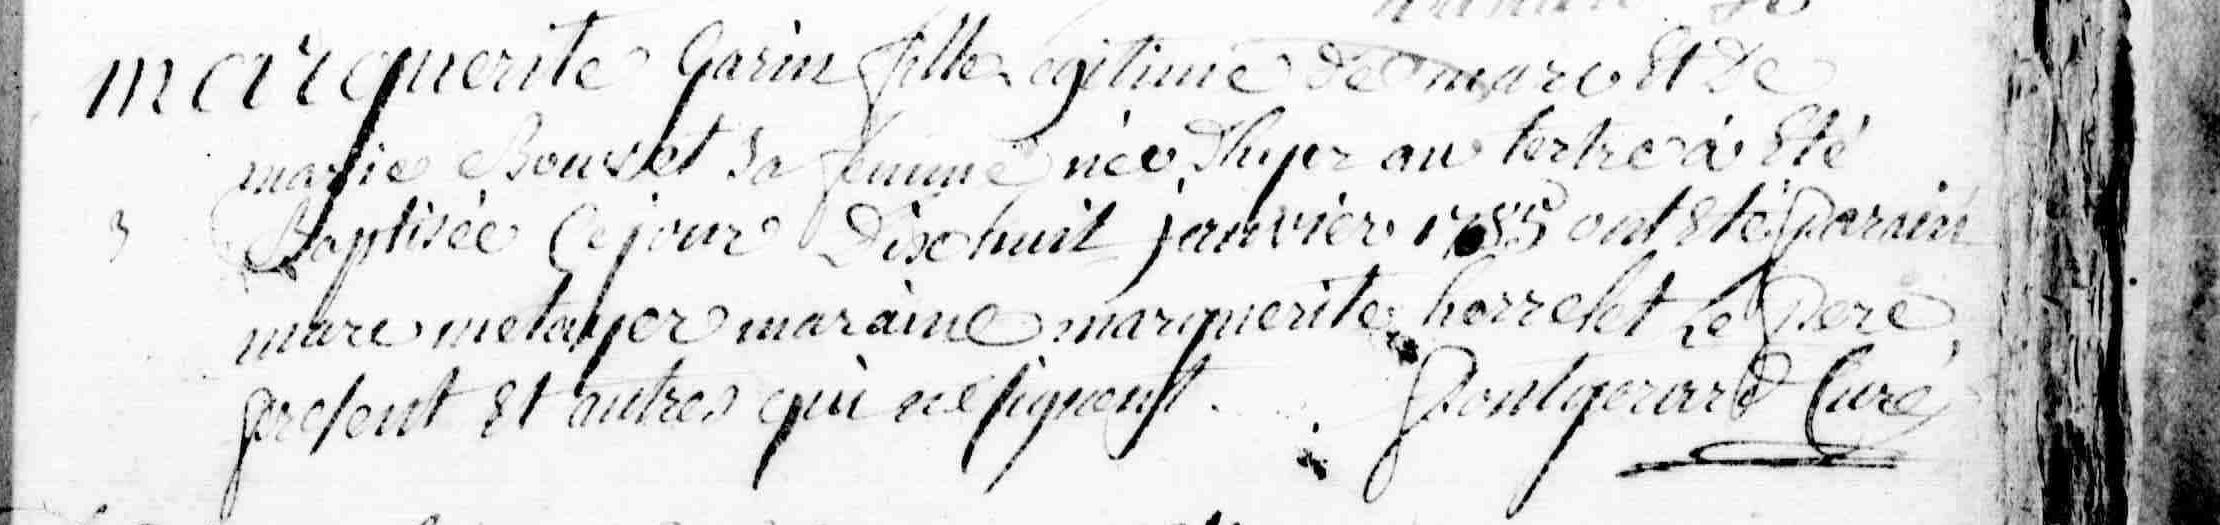 marguerite Garin fille legitime de marc Et de
marie Bouset sa femme née d'hyer au tertre a Eté
3 Baptisée Ce jour Dixhuit janvier 1785 ont Eté parain
marc metayer maraine marguerite Le Pere
present Et autres qui ne signent. Pontgerard Curé